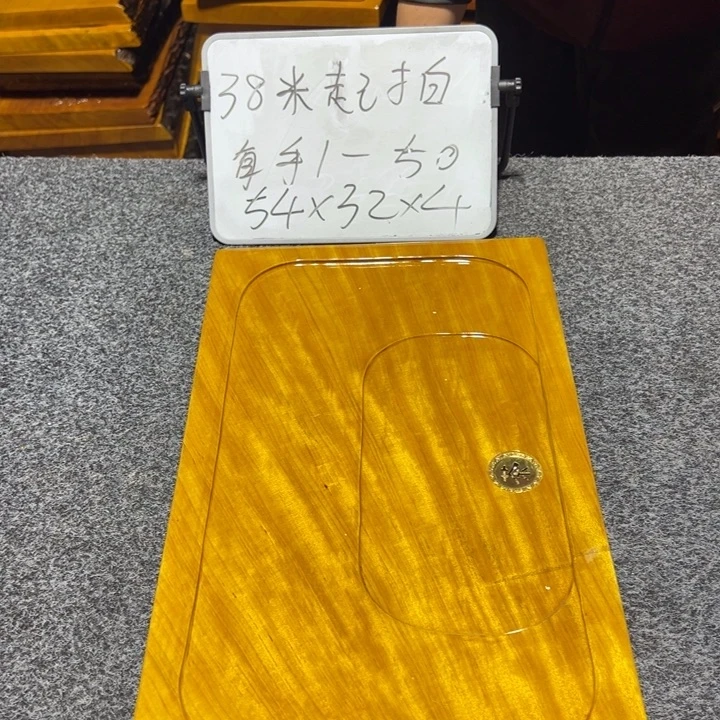 38米起拍
每手1一50
54×32×4